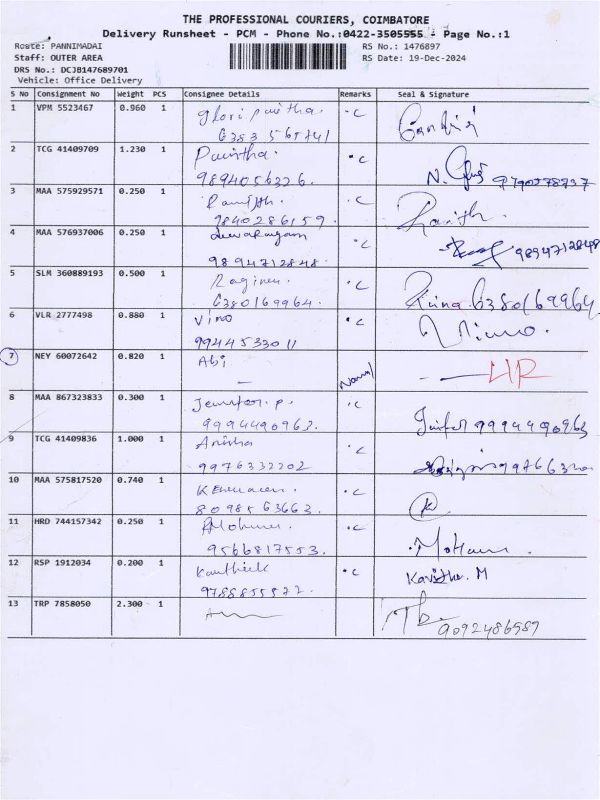 THE PROFESSIONAL COURIERS, COIMBATORE
Delivery Runsheet - PCM - Phone No.:0422-3505555 - Page No.:1
Route: PANNIMADAI
RS No.: 1476897
Staff: OUTER AREA
RS Date: 19-Dec-2024
DRS No.: DCJB147689701
Vehicle: Office Delivery
S No Consignment No Weight PCS Consignee Details Remarks Seal & Signature
1 VPM 5523467 0.960 1 ·C
6383 565741
2 TCG 41409709 1.230 1 Pavitha. ·C
9894056326.
3 MAA 575929571 0.250 1 Ranjith. ·C Ranjith.
9840286159.
4 MAA 576937006 0.250 1 ·C 9894712848
9894712848.
5 SLM 360889193 0.500 1 ·C 6380169964
6380169964.
6 VLR 2777498 0.880 1 Vino ·C
9944533011
7 NEY 60072642 0.820 1 Abi — HR
8 MAA 867323833 0.300 1 Jennifer. p. ·C
9994490963. 9994490963
9 TCG 41409836 1.000 1 Anisha ·C
9976332202
10 MAA 575817520 0.740 1 ·C K
8098563663.
11 HRD 744157342 0.250 1 ·C
9566817553. Mohan
12 RSP 1912034 0.200 1 Karthick ·C Kavitha. M
9788855522.
13 TRP 7858050 2.300 1
9092486589